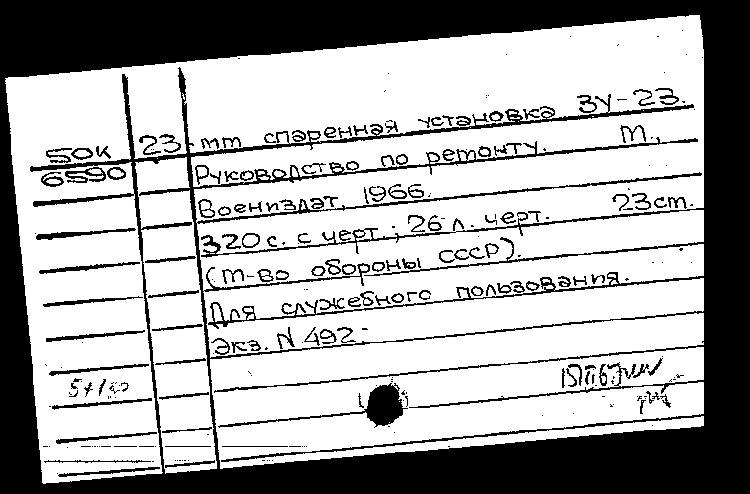 50к 23-мм спаренная установка ЗУ-23.
6590 Руководство по ремонту. М.,
Воениздат, 1966.
320 с. с черт.; 26 л. черт. 23см.
(М-во обороны СССР).
Для служебного пользования.
Экз. N 492.